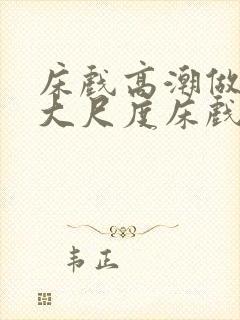 床戏高潮做
大尺度床戏
韦正